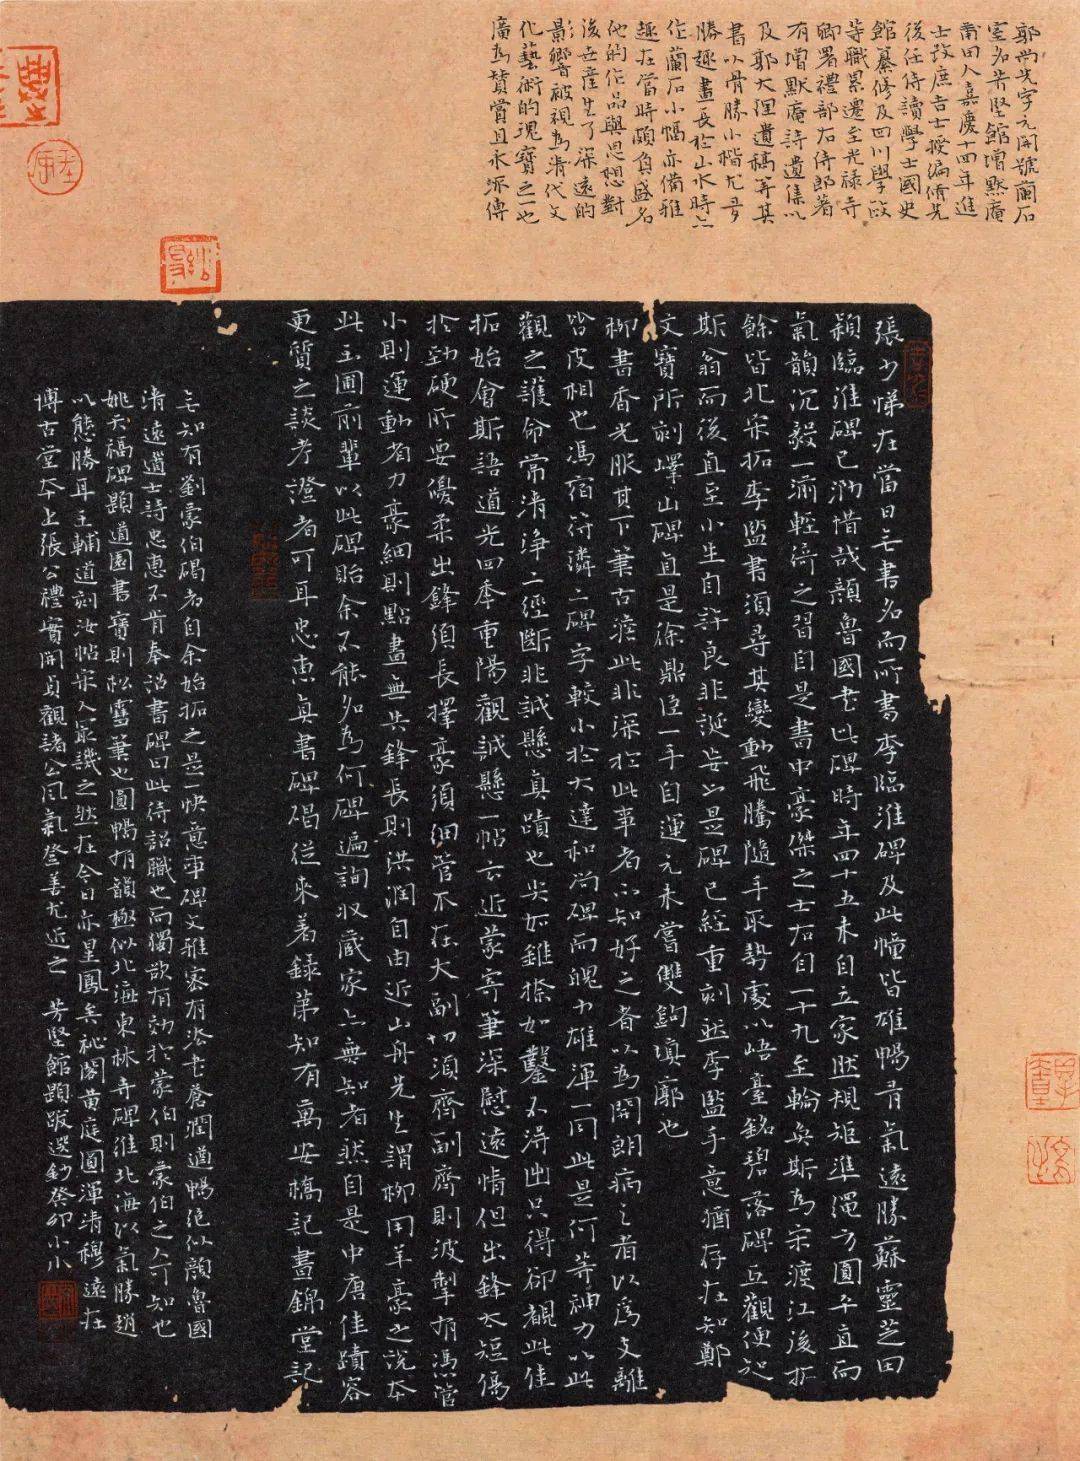 郭尚先字元開號蘭石
室名芳堅館增默庵
莆田人嘉慶十四年進
士改庶吉士授編脩先
後任侍讀學士國史
館纂修及四川學政
等職累遷至光祿寺
卿署禮部右侍郎著
有增默庵詩遺集以
及郭大理遺稿等其
書以骨勝小楷尤多
勝趣畫長於山水時亦
作蘭石小幅亦備雅
趣在當時頗負盛名
他的作品與思想對
後世產生了深遠的
影響被視為清代文
化藝術的瑰寶之一也
廣為贊賞且永流傳
張少悌在當日無書名而所書李臨淮碑及此幢皆雄暢有氣遠勝蘇靈芝田
潁臨淮碑已泐惜哉顏魯國書此碑時年四十五未自立家然規矩準繩方圓平直而
氣韻沉毅一洗輕綺之習自是書中豪傑之士石自一十九至輪奐斯為宋渡江後拓
餘皆北宋拓李監書須尋其變動飛騰隨手取勢處以峿臺銘碧落碑互觀便知
斯翁而後直至小生自許良非誕妄亦是碑已經重刻然李監手意猶存在知鄭
文寶所刻嶧山碑直是徐鼎臣一手自運元未嘗雙鉤填廓也
柳書香光服其下筆古澹此非深於此事者不知好之者以為開朗病之者以為支離
皆皮相也馮宿苻璘二碑字較小於大達和尚碑而魄力雄渾一同此是何等神力以此
觀之護命常清淨二經斷非誠懸真蹟也尖如錐捺如鑿不得出只得卻觀此佳
拓始會斯語道光四季重陽觀誠懸一帖云近蒙寄筆深慰遠情但出鋒太短傷
於勁硬所要優柔出鋒須長擇豪須細管不在大副切須齊副齊則波掣有馮管
小則運動省力豪細則點畫無失鋒長則洪潤自由近山舟先生謂柳用羊豪之說本
此玉圃前輩以此碑貽余不能名為何碑遍詢收藏家亦無知者然自是中唐佳蹟容
更質之談考證者可耳忠惠真書碑碣從來著錄第知有萬安橋記晝錦堂記
無知有劉蒙伯碣者自余始拓之是一快意事碑文雅密有法書養潤遒暢絕似顏魯國
清遠道士詩忠惠不肯奉詔書碑曰此侍詔職也而獨欲有効於蒙伯則蒙伯之人可知也
姚天福碑題道園書寶則松雪筆也圓暢有韻極似北海東林寺碑惟北海以氣勝趙
以態勝耳王輔道刻汝帖宋人最譏之然在今日亦星鳳矣祕閣黃庭圓渾清穆遠在
博古堂本上張公禮實開貞觀諸公風氣登善尤近之　芳堅館題跋選鈔癸卯小小